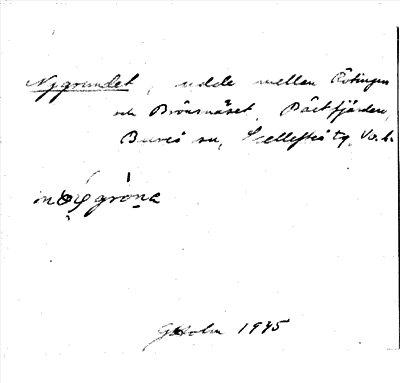 Nygrundet, udde mellan Rötingen
och Brönsnäset, Båtfjärden,
Bureå sn, Skellefteå tg, Vb.
GHolm 1945